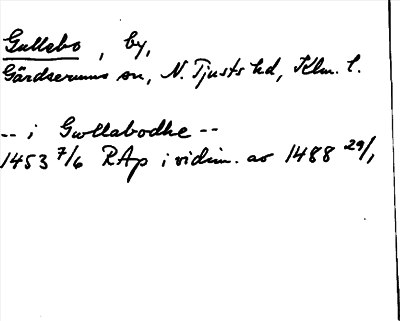 Gullebo, by,
Gärdserums sn, N. Tjusts hd, Klm. l.
-- i Gwllabodhe --
1453 7/6 RAp i vidim. av 1488 29/1